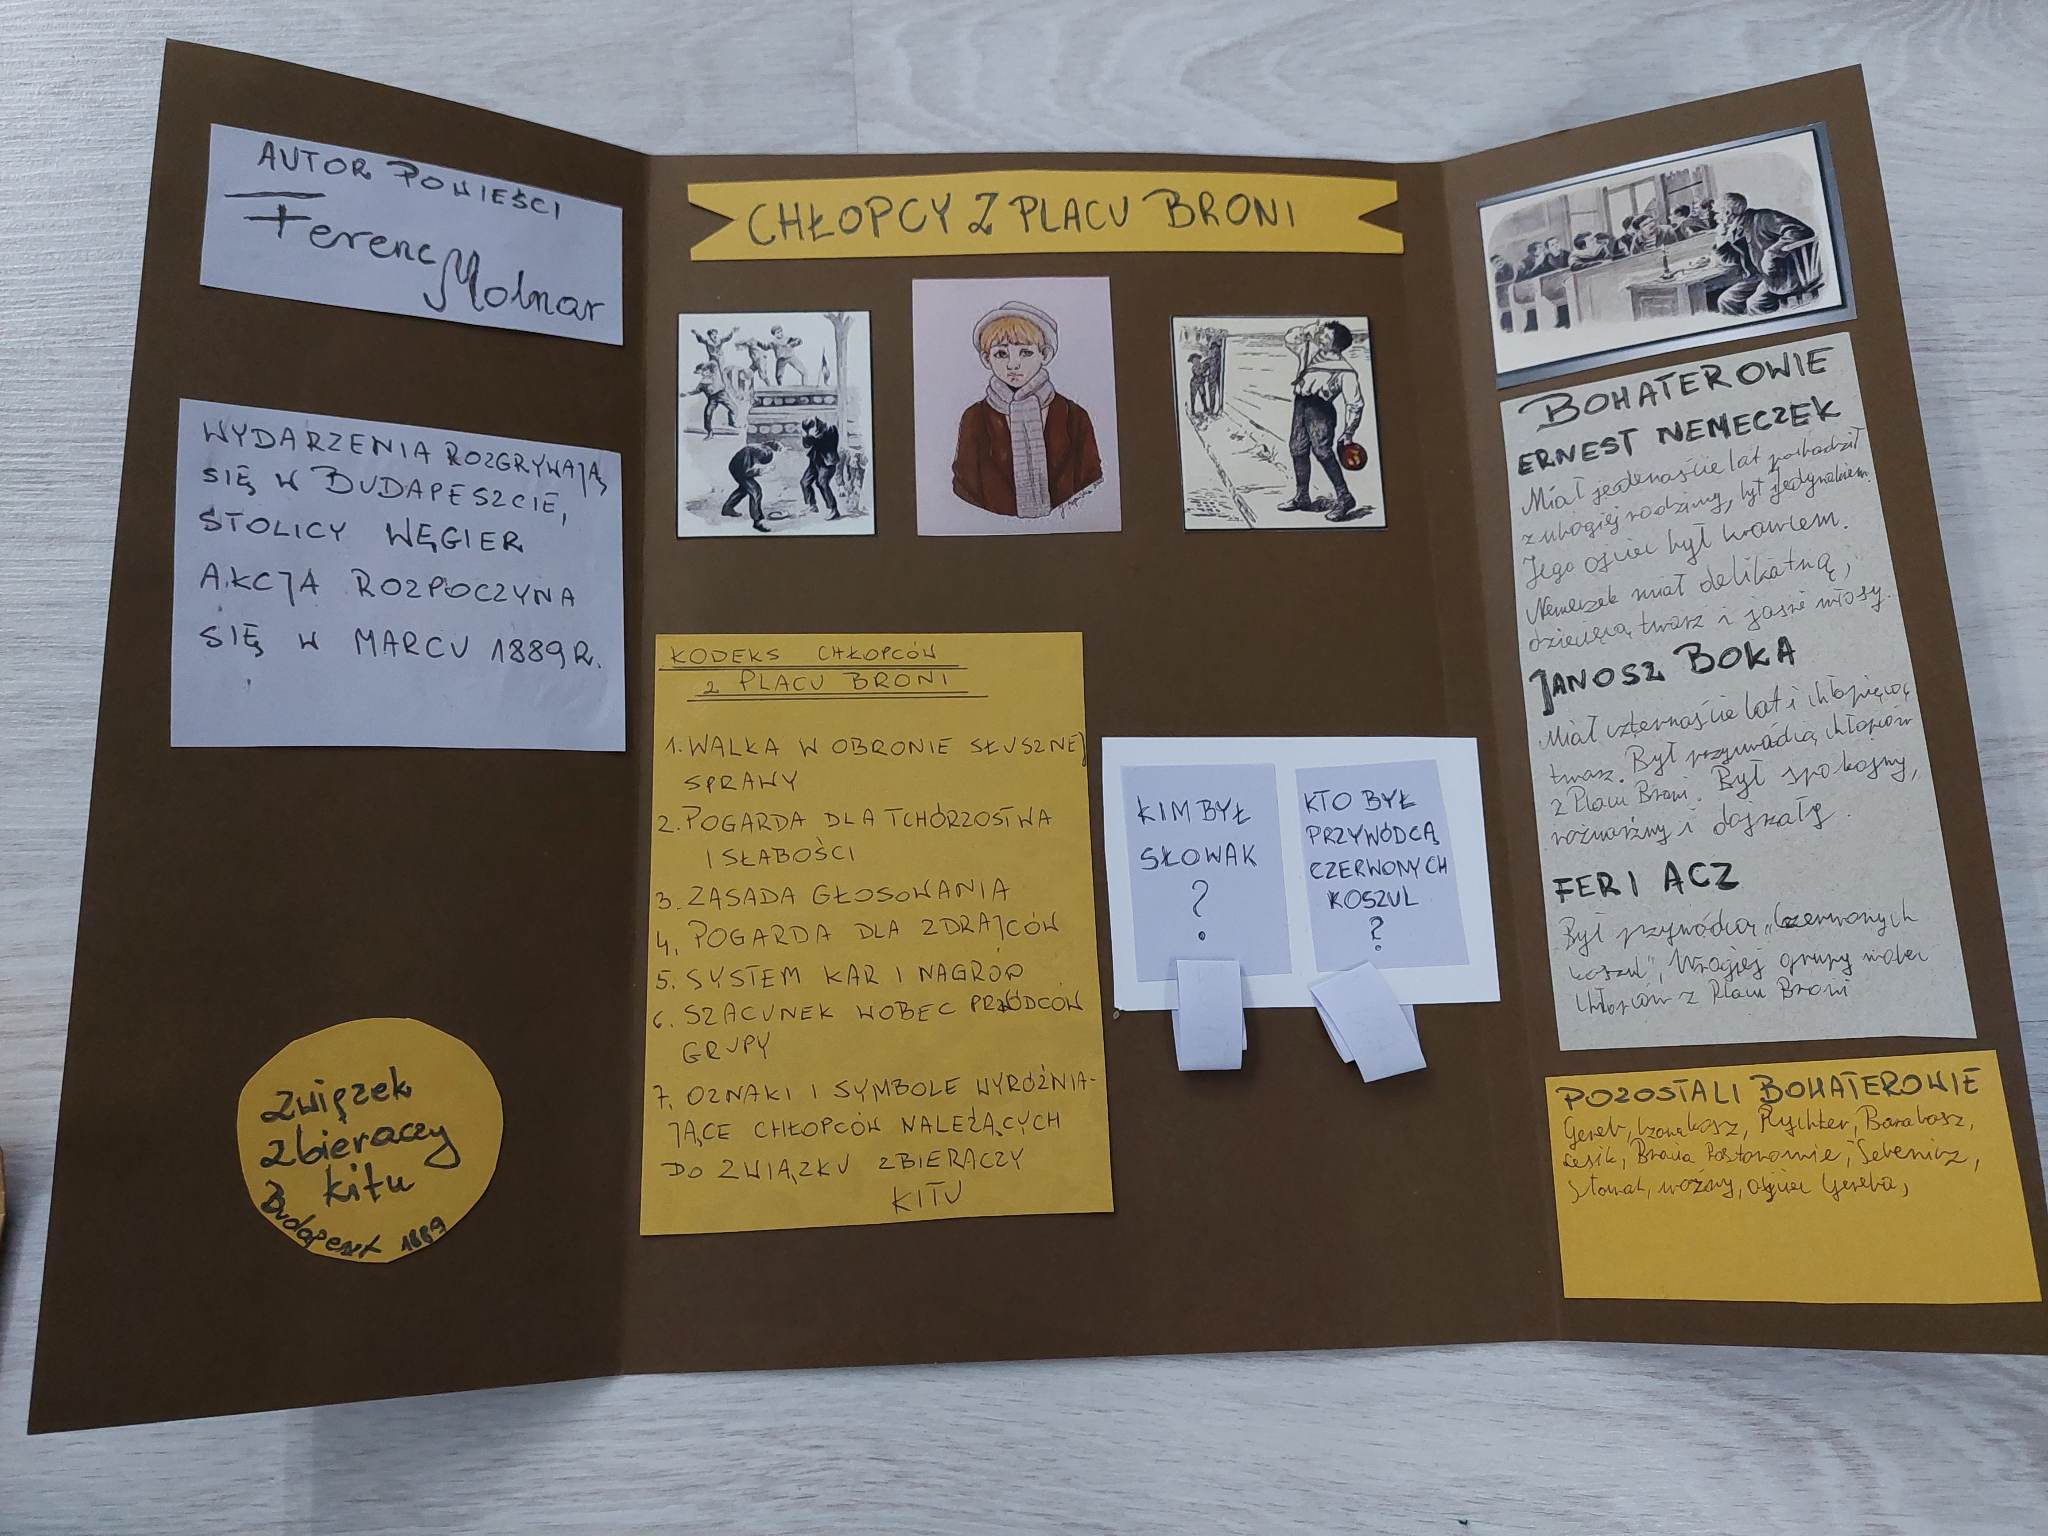 AUTOR POWIEŚCI
Ferenc
Molnar
WYDARZENIA ROZGRYWAJĄ
SIĘ W BUDAPESZCIE,
STOLICY WĘGIER
AKCJA ROZPOCZYNA
SIĘ W MARCU 1889R.
Związek
Zbieraczy
kitu
Budapeszt 1889
CHŁOPCY Z PLACU BRONI
KODEKS CHŁOPCÓW
Z PLACU BRONI
1. WALKA W OBRONIE SŁUSZNEJ
SPRAWY
2. POGARDA DLA TCHÓRZOSTWA
I SŁABOŚCI
3. ZASADA GŁOSOWANIA
4. POGARDA DLA ZDRAJCÓW
5. SYSTEM KAR I NAGRÓD
6. SZACUNEK WOBEC PRZWÓDCÓW
GRUPY
7. OZNAKI I SYMBOLE WYRÓŻNIA-
JĄCE CHŁOPCÓW NALEŻĄCYCH
DO ZWIĄZKU ZBIERACZY
KITU
KIM BYŁ
SŁOWAK
?
KTO BYŁ
PRZYWÓDCĄ
CZERWONYCH
KOSZUL
?
BOHATEROWIE
ERNEST NEMECZEK
Miał jedenaście lat pochodził
z ubogiej rodziny, był jedynakiem.
Jego ojciec był krawcem.
Nemeczek miał delikatną,
dziecięcą twarz i jasne włosy.
JANOSZ BOKA
Miał czternaście lat i chłopięcą
twarz. Był przywódcą chłopców
z Placu Broni. Był spokojny,
rozważny i dojrzały.
FERI ACZ
Był przywódcą „Czerwonych
koszul", Wrogiej grupy wobec
Chłopców z Placu Broni
POZOSTALI BOHATEROWIE
Gereb, Czonakosz, Rychter, Barabasz,
Lesik, Bracia Pastorowie, Sebenicz,
Słowak, woźny, Ojciec Gereba,